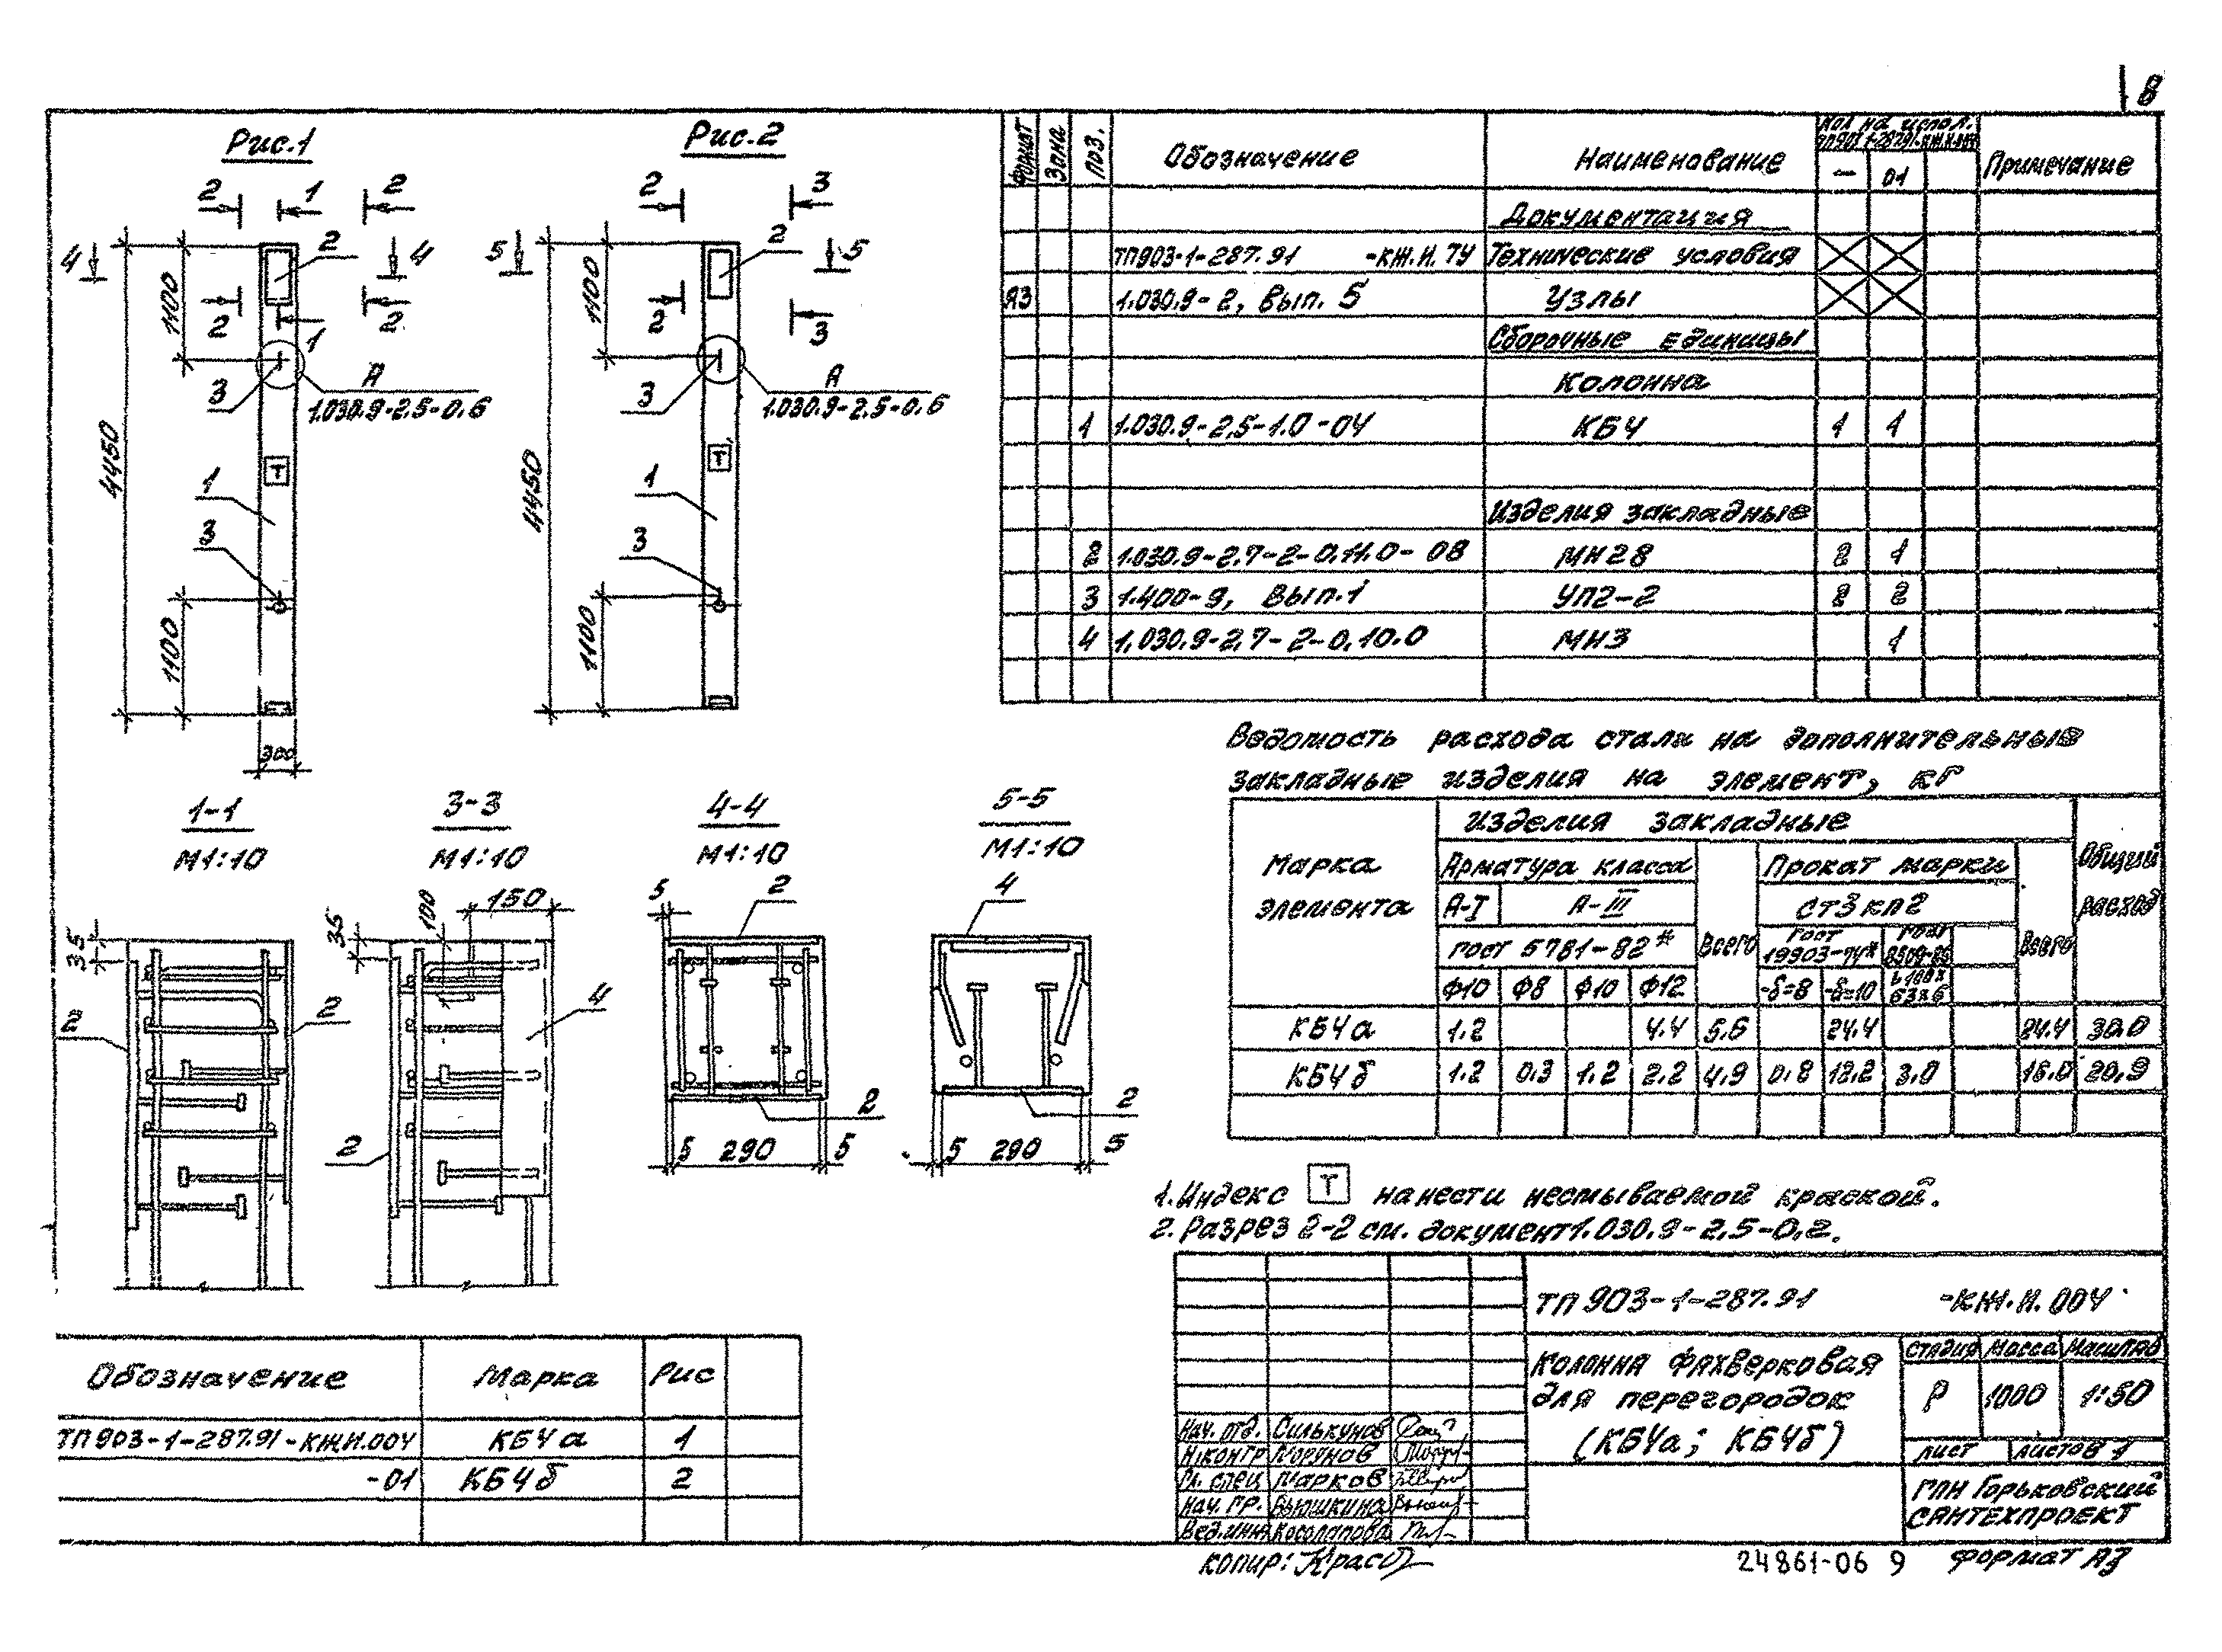 8
Рис.1
Рис.2
2 1 2
2 3
4 2 4
5 2 5
1100
1100
2 1 2
2 3
3
А
1.030.9-2.5-0.6
3
А
1.030.9-2.5-0.6
4450
Т
1
3
1100
300
4450
Т
1
3
1100
1-1
М1:10
3-3
М1:10
4-4
М1:10
5-5
М1:10
35
2
2
35
100
150
4
2
5
2
2
5 290 5
4
2
5 290 5
Формат Зона Поз. Обозначение Наименование Кол на испол. Примечание
- 01
Документация
ТП903-1-287.91 -КЖ.И.ТУ Технические условия
А3 1.030.9-2, Вып. 5 Узлы
Сборочные единицы
Колонна
1 1.030.9-2,5-1.0-04 КБ4 1 1
Изделия закладные
2 1.030.9-2.7-2-0.11.0-08 МН28 2 1
3 1.400-9, Вып.1 УП2-2 2 2
4 1.030.9-2.7-2-0.10.0 МН3 1
Ведомость расхода стали на дополнительные
закладные изделия на элемент, кг
Марка элемента
Изделия закладные
Общий расход
Арматура класса Всего Прокат марки Всего
А-I А-III Ст3кп2
ГОСТ 5781-82* ГОСТ 19903-74* ГОСТ 8509-86
Ф10 Ф8 Ф10 Ф12 -δ=8 -δ=10 L100х63х6
КБ4а 1.2 4.4 5.6 24.4 24.4 30.0
КБ4б 1.2 0.3 1.2 2.2 4.9 0.8 12.2 3.0 16.0 20.9
1. Индекс Т нанести несмываемой краской.
2. Разрез 2-2 см. документ 1.030.9-2.5-0.2.
Обозначение Марка Рис
ТП903-1-287.91-КЖИ.004 КБ4а 1
-01 КБ4б 2
ТП903-1-287.91 -КЖ.И.004
Колонна фахверковая
для перегородок
(КБ4а; КБ4б)
Стадия Масса Масштаб
Р 1000 1:50
Лист Листов 1
ГПИ Горьковский
САНТЕХПРОЕКТ
Нач. отд. Силькунов
Н.контр Морунов
Гл. спец Марков
Нач. гр. Вьюшкина
Вед.инж Косолапова
Копир:
24861-06 9 Формат А3